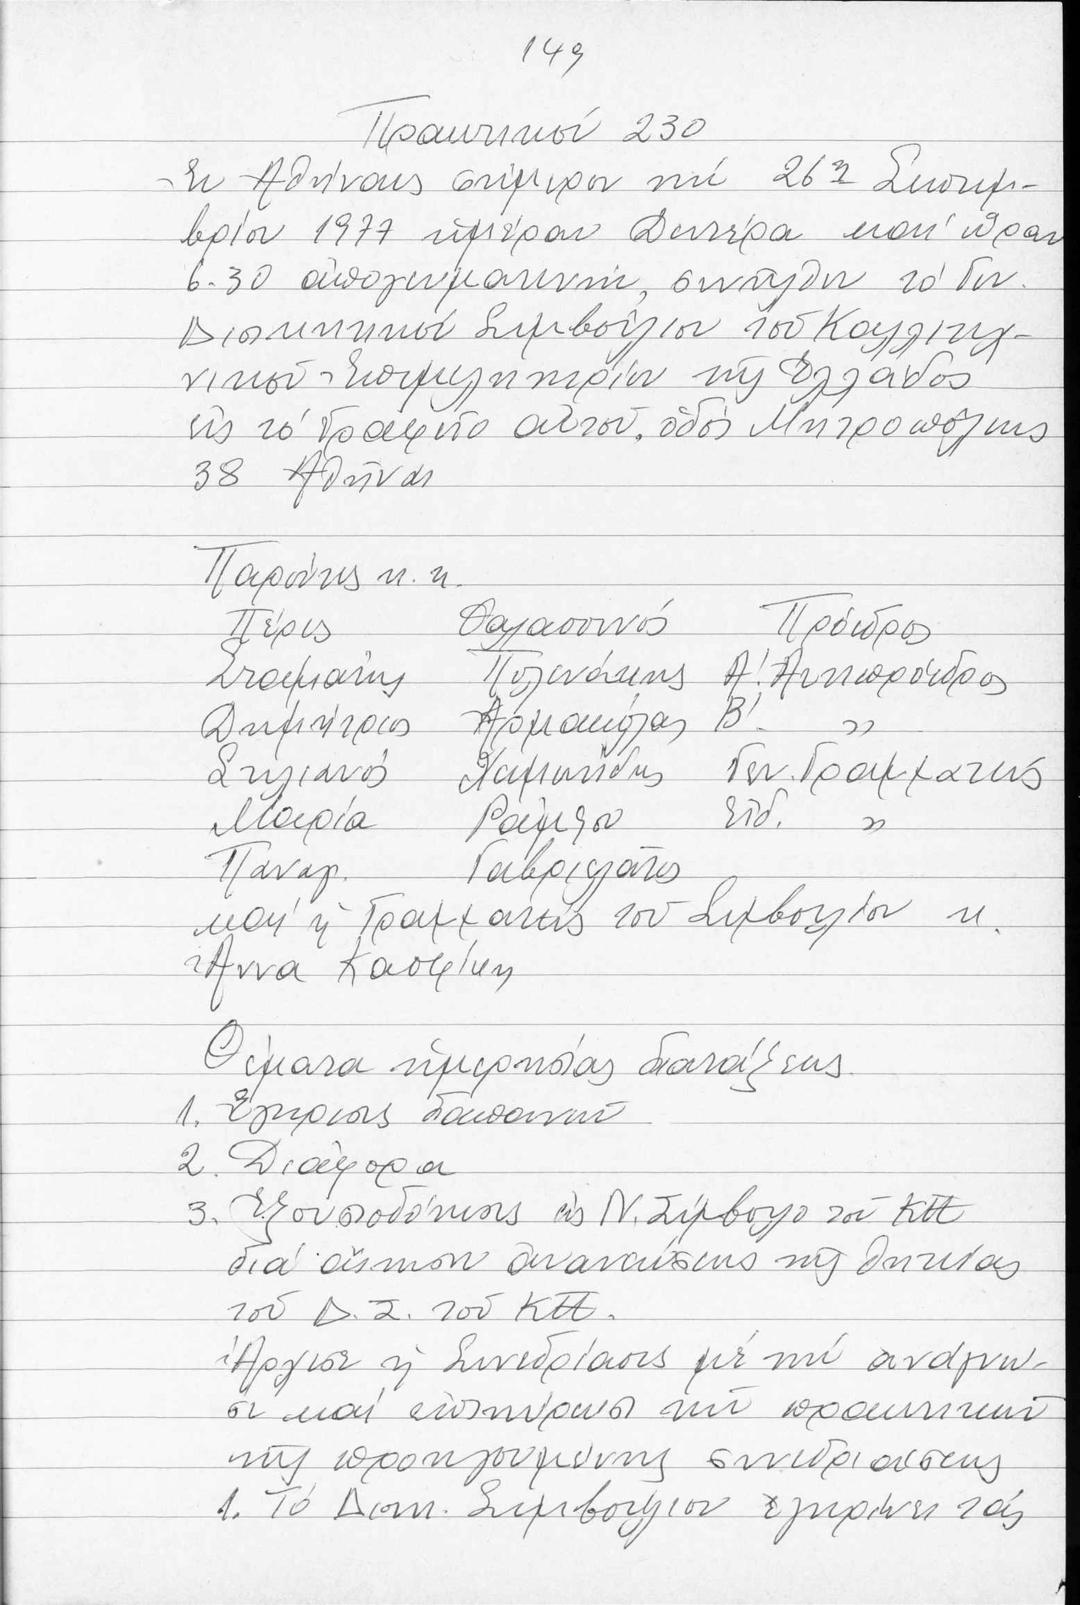 149
Πρακτικόν 230
Ἐν Ἀθήναις σήμερον τήν 26η Σεπτεμ-
βρίου 1977 ἡμέραν Δευτέρα καί ὥραν
6.30 ἀπογευματινήν, συνῆλθεν τό
Διοικητικόν Συμβούλιον τοῦ Καλλιτεχ-
νικοῦ Ἐπιμελητηρίου τῆς Ἑλλάδος
εἰς τό Γραφεῖο αὐτοῦ, ὁδός Μητροπόλεως
38 Ἀθῆναι
Παρόντες κ.κ.
Πέρις Θαλασσινός Πρόεδρος
Σταμάτης Πολενάκης Α! Ἀντιπρόεδρος
Δημήτριος Ἀρμακόλας Β! "
Στυλιανός Γεν. Γραμματεύς
Μαρία Εἰδ. "
Παναγ. Γαβριελᾶτος
καί ἡ Γραμματεύς τοῦ Συμβουλίου κ.
Ἄννα Καστρίτη
Θέματα ἡμερησίας διατάξεως
1. Ἔγκρισις δαπανῶν
2. Διάφορα
3. Ἐξουσιοδότησις εἰς Ν. Σύμβουλο τοῦ ΚΠ
διά αἴτησιν ἀνανεώσεως τῆς θητείας
τοῦ Δ.Σ. τοῦ ΚΠ.
Ἄρχισε ἡ Συνεδρίασις μέ τήν ἀνάγνω-
σι καί ἐπικύρωσι τῶν πρακτικῶν
τῆς προηγουμένης συνεδριάσεως
1. Τό Διοικ. Συμβούλιον ἐγκρίνει τάς